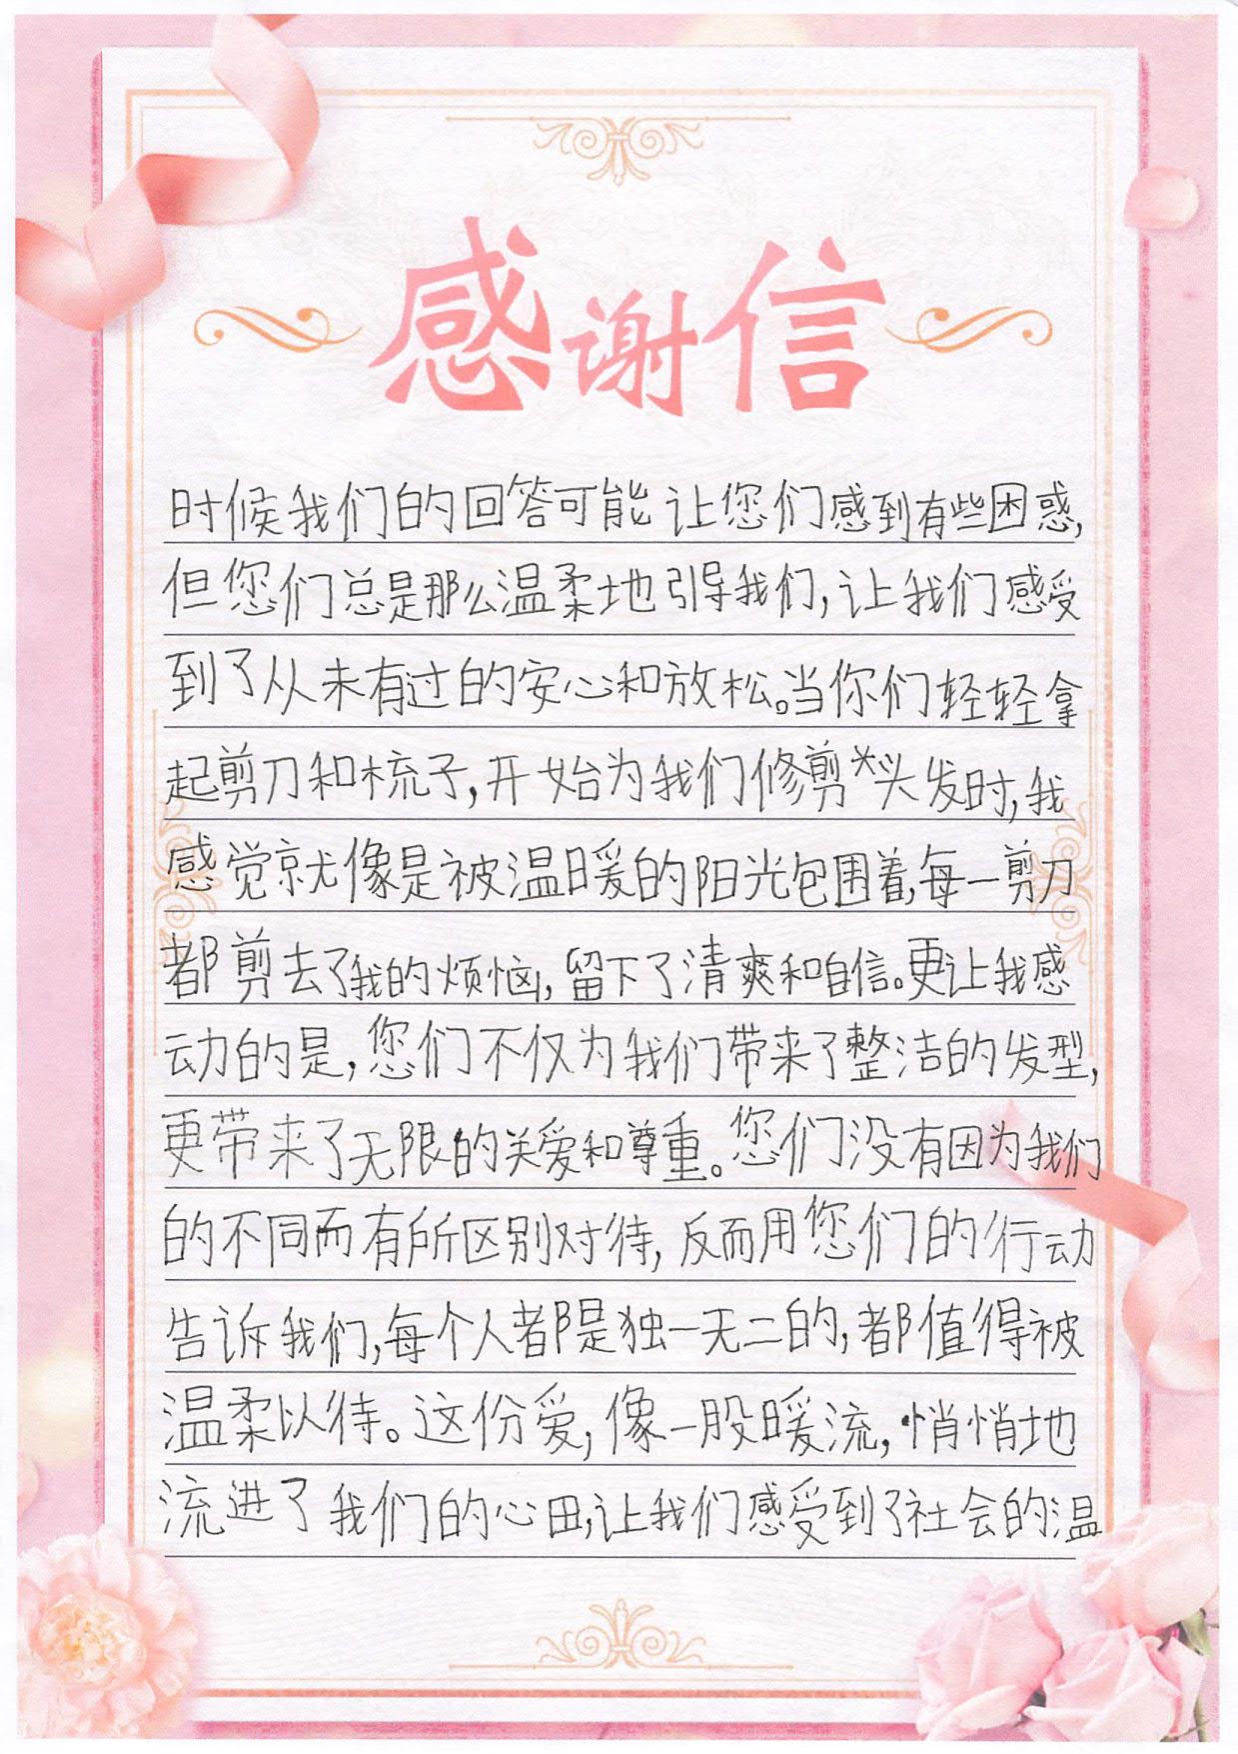 感谢信
时候我们的回答可能让您们感到有些困惑,
但您们总是那么温柔地引导我们,让我们感受
到了从未有过的安心和放松。当你们轻轻拿
起剪刀和梳子,开始为我们修剪头发时,我
感觉就像是被温暖的阳光包围着,每一剪刀
都剪去了我的烦恼,留下了清爽和自信。更让我感
动的是,您们不仅为我们带来了整洁的发型,
更带来了无限的关爱和尊重。您们没有因为我们
的不同而有所区别对待,反而用您们的行动
告诉我们,每个人都是独一无二的,都值得被
温柔以待。这份爱,像一股暖流,悄悄地
流进了我们的心田,让我们感受到了社会的温